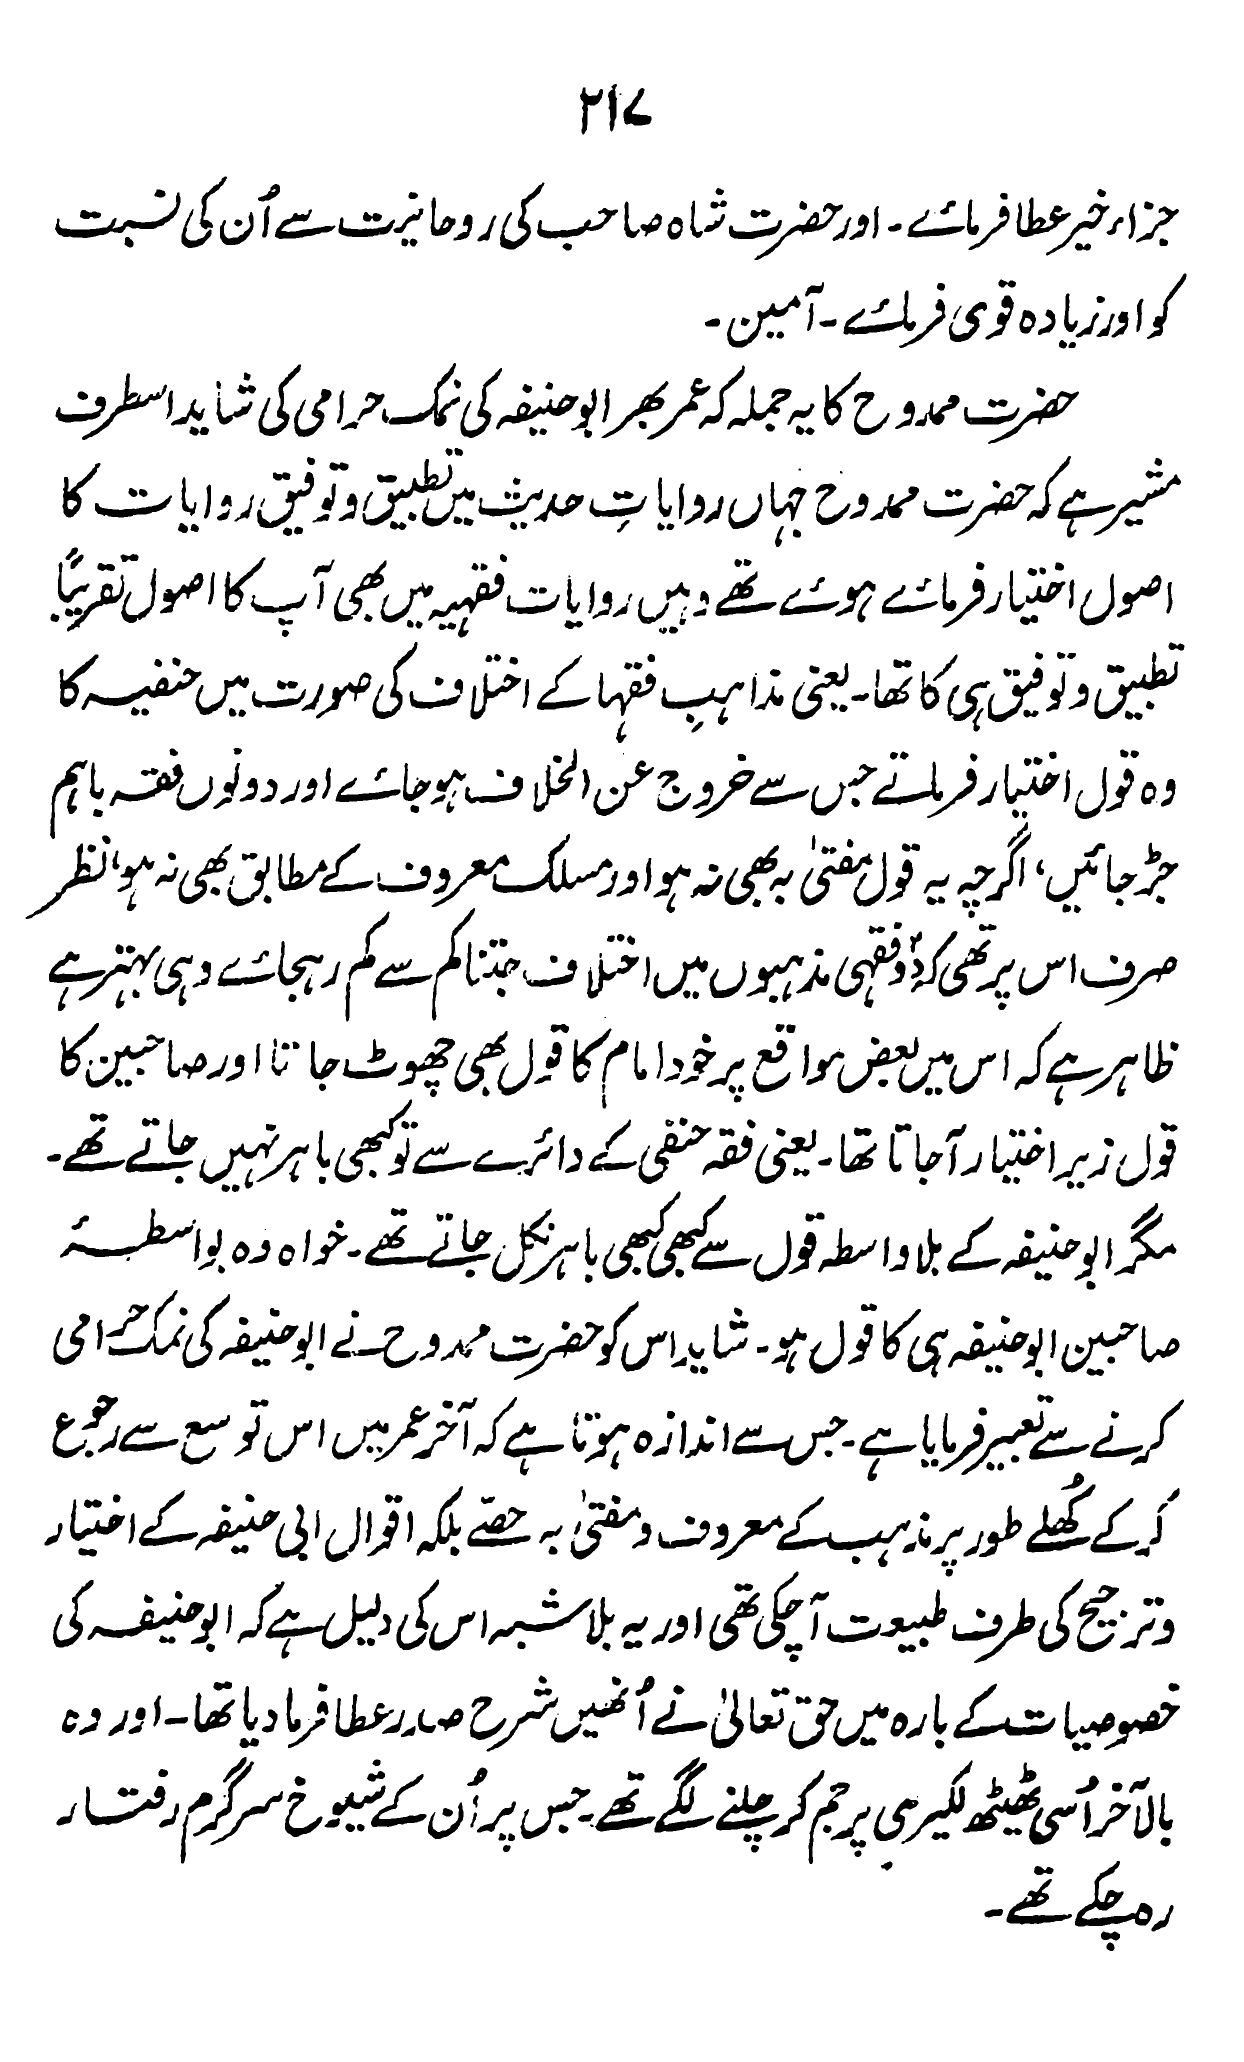 ۲۱۷
جزاء خیر عطا فرمائے۔ اور حضرت شاہ صاحب کی روحانیت سے اُن کی نسبت
کو اور زیادہ قوی فرمائے۔ آمین۔
حضرت ممدوح کا یہ جملہ کہ عمر بھر ابوحنیفہ کی نمک حرامی کی شاید اسطرف
مشیر ہے کہ حضرت ممدوح جہاں روایاتِ حدیث میں تطبیق و توفیق روایات کا
اصول اختیار فرمائے ہوئے تھے وہیں روایات فقہیہ میں بھی آپ کا اصول تقریباً
تطبیق و توفیق ہی کا تھا۔ یعنی مذاہبِ فقہا کے اختلاف کی صورت میں حنفیہ کا
وہ قول اختیار فرماتے جس سے خروج عن الخلاف ہو جائے اور دونوں فقہ باہم
جڑ جائیں، اگرچہ یہ قول مفتیٰ بہ بھی نہ ہو اور مسلک معروف کے مطابق بھی نہ ہو، نظر
صرف اس پر تھی کہ دو فقہی مذہبوں میں اختلاف جتنا کم سے کم رہجائے وہی بہتر ہے
ظاہر ہے کہ اس میں بعض مواقع پر خود امام کا قول بھی چھوٹ جاتا اور صاحبین کا
قول زیر اختیار آجاتا تھا۔ یعنی فقہ حنفی کے دائرے سے تو کبھی باہر نہیں جاتے تھے۔
مگر ابوحنیفہ کے بلاواسطہ قول سے کبھی کبھی باہر نکل جاتے تھے۔ خواہ وہ بواسطۂ
صاحبین ابوحنیفہ ہی کا قول ہو۔ شاید اس کو حضرت ممدوح نے ابوحنیفہ کی نمک حرامی
کرنے سے تعبیر فرمایا ہے۔ جس سے اندازہ ہوتا ہے کہ آخر عمر میں اس توسع سے رجوع
کر کے کُھلے طور پر مذہب کے معروف و مفتیٰ بہ حصّے بلکہ اقوال ابی حنیفہ کے اختیار
و ترجیح کی طرف طبیعت آچکی تھی اور یہ بلاشبہ اس کی دلیل ہے کہ ابوحنیفہ کی
خصوصیات کے بارہ میں حق تعالیٰ نے اُنھیں شرح صدر عطا فرما دیا تھا۔ اور وہ
بالآخر اُسی ٹھیٹھ لکیر ہی پر جم کر چلنے لگے تھے۔ جس پر اُن کے شیوخ سرگرم رفتار
رہ چکے تھے۔